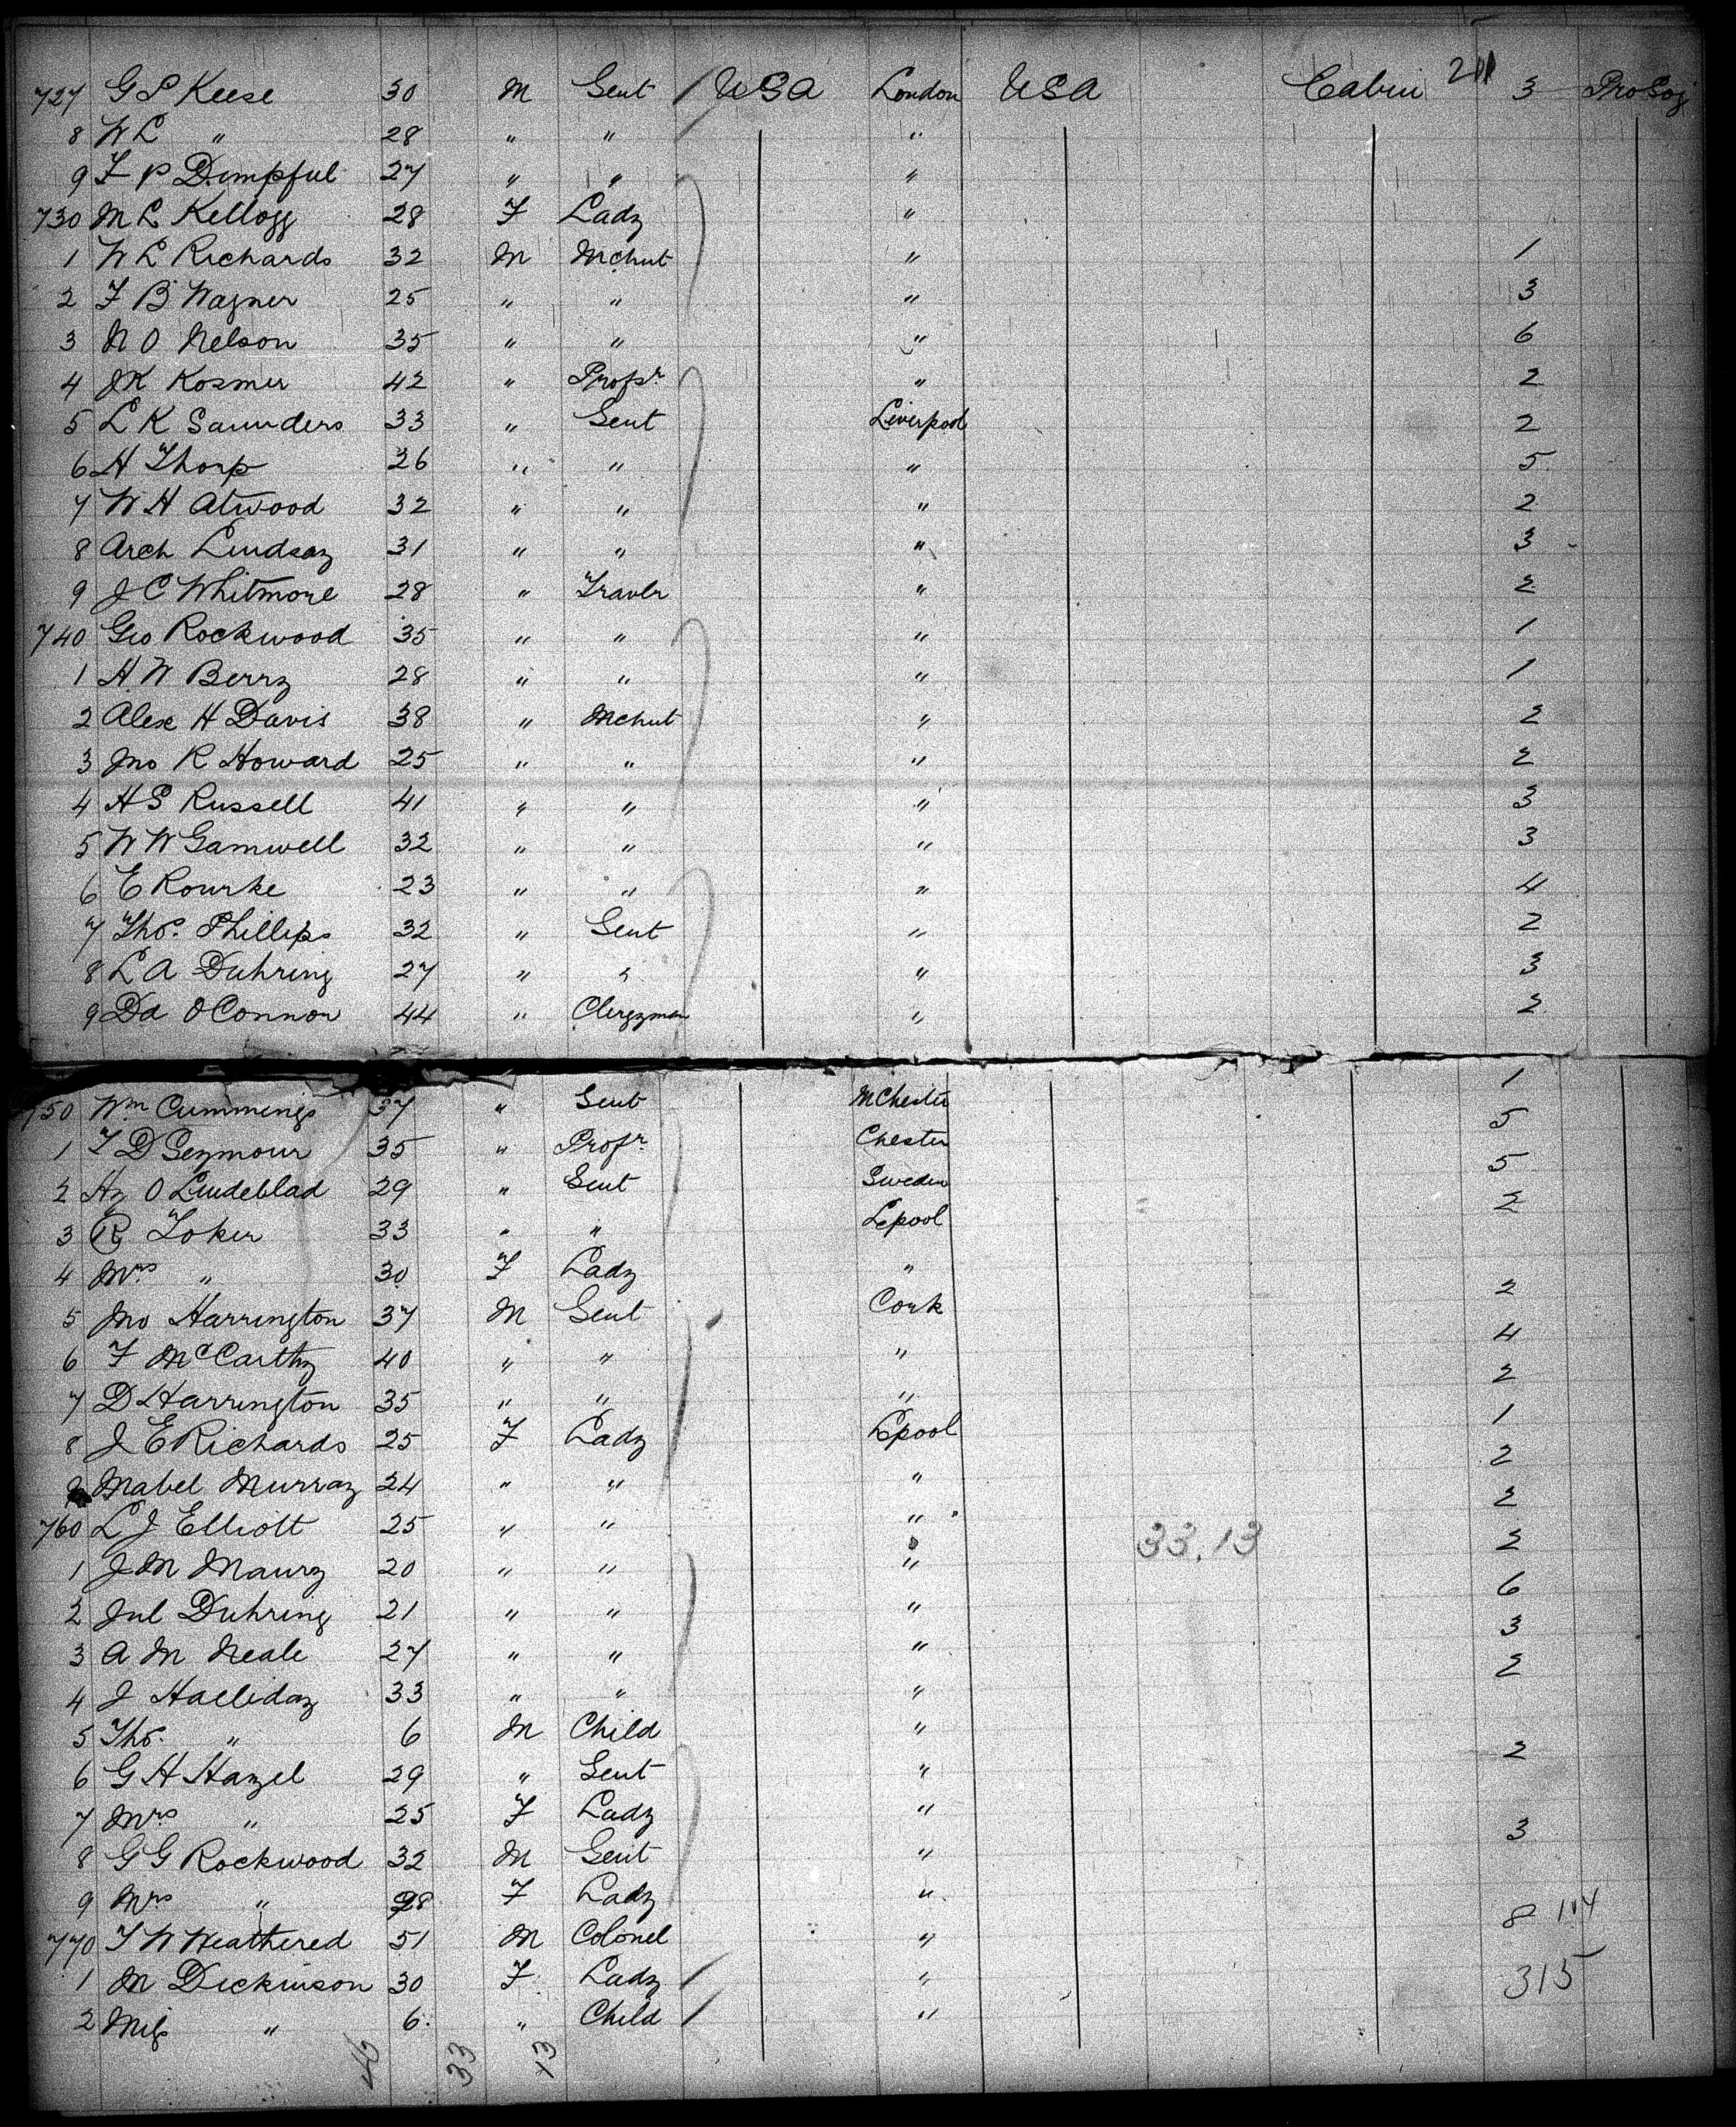 211
727 G S Keese 30 M Gent USA London USA Cabin 3 Pro Soj
8 W L " 28 " " "
9 F P Dimpful 27 " " "
730 M L Kellogg 28 F Lady "
1 W L Richards 32 M Mchnt " 1
2 F B Wagner 25 " " " 3
3 N O Nelson 35 " " " 6
4 J K Kosmer 42 " Profsr " 2
5 L K Saunders 33 " Gent Liverpool 2
6 H Thorp 26 " " " 5
7 W H Atwood 32 " " " 2
8 Arch Lindsay 31 " " " 3
9 J C Whitmore 28 " Travlr " 2
740 Geo Rockwood 35 " " " 1
1 H W Berry 28 " " " 1
2 Alex H Davis 38 " Mchnt " 2
3 Jno R Howard 25 " " " 2
4 H S Russell 41 " " " 3
5 W W Gamwell 32 " " " 3
6 E Rourke 23 " " " 4
7 Thos. Phillips 32 " Gent " 2
8 L A Duhring 27 " " " 3
9 Dd O Connor 44 " Clergyman " 2
750 Wm Cummings 37 " Gent MChester 1
1 T D Seymour 35 " Profr Chester 5
2 Hy O Lindeblad 29 " Gent Sweden 5
3 R Toker 33 " " Lpool 2
4 Mrs " 30 F Lady "
5 Jno Harrington 37 M Gent Cork 2
6 F McCarthy 40 " " " 4
7 D Harrington 35 " " " 2
8 J E Richards 25 F Lady Lpool 1
9 Mabel Murray 24 " " " 2
760 L J Elliott 25 " " " 2
33.13
1 J M Maury 20 " " " 2
2 Jul Duhring 21 " " " 6
3 A M Neale 27 " " " 3
4 J Halliday 33 " " " 2
5 Thos. " 6 M Child "
6 G H Hazel 29 " Gent " 2
7 Mrs " 25 F Lady "
8 G G Rockwood 32 M Gent " 3
9 Mrs " 28 F Lady "
770 T W Weathered 51 M Colonel " 8 104
1 M Dickinson 30 F Lady " 315
2 " 6 " Child "
46 33 13